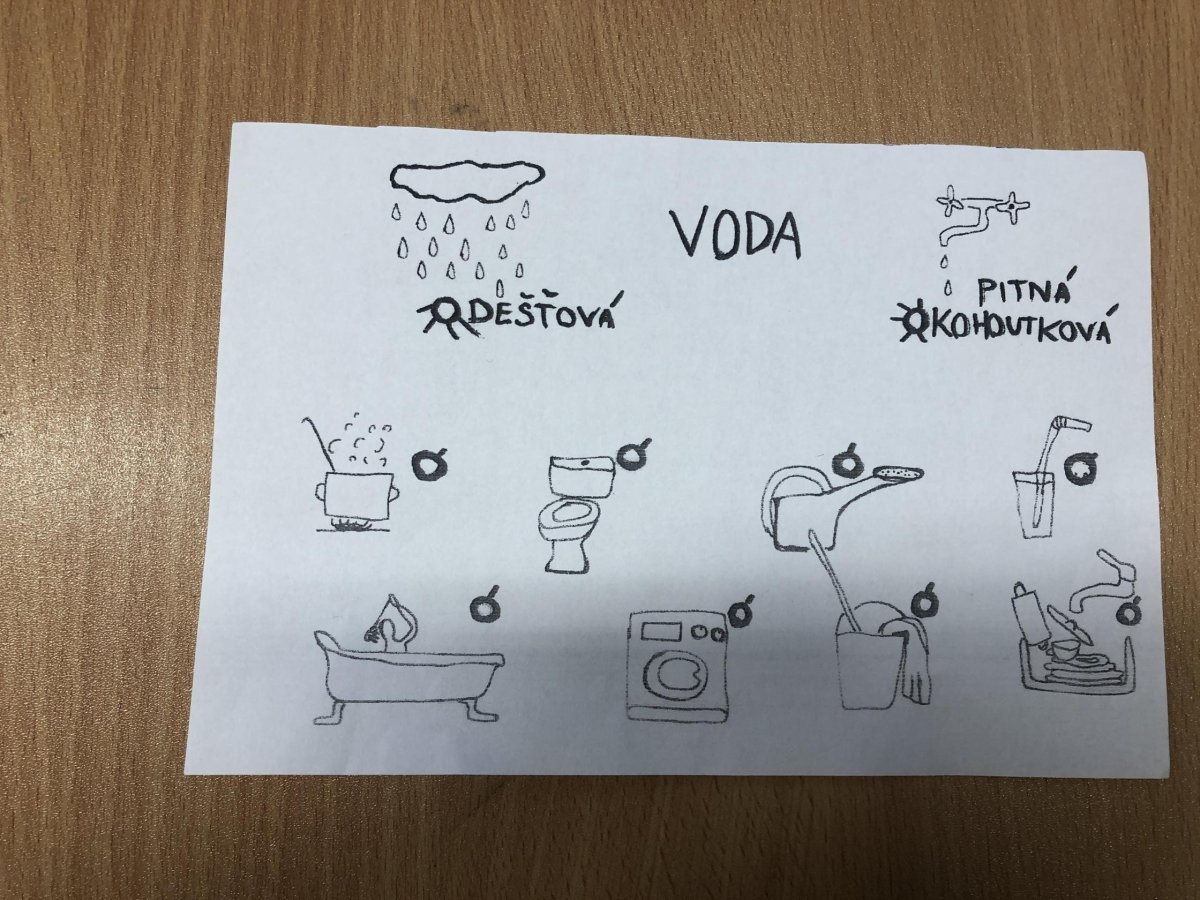 VODA
DEŠŤOVÁ
PITNÁ
KOHOUTKOVÁ